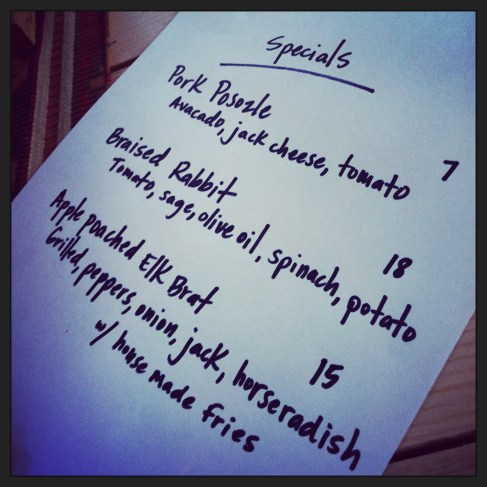 Specials
Pork Posozle
Avacado, jack cheese, tomato 7
Braised Rabbit
Tomato, sage, olive oil, spinach, potato 18
Apple poached Elk Brat
Grilled, peppers, onion, jack, horseradish 15
w/ house made fries